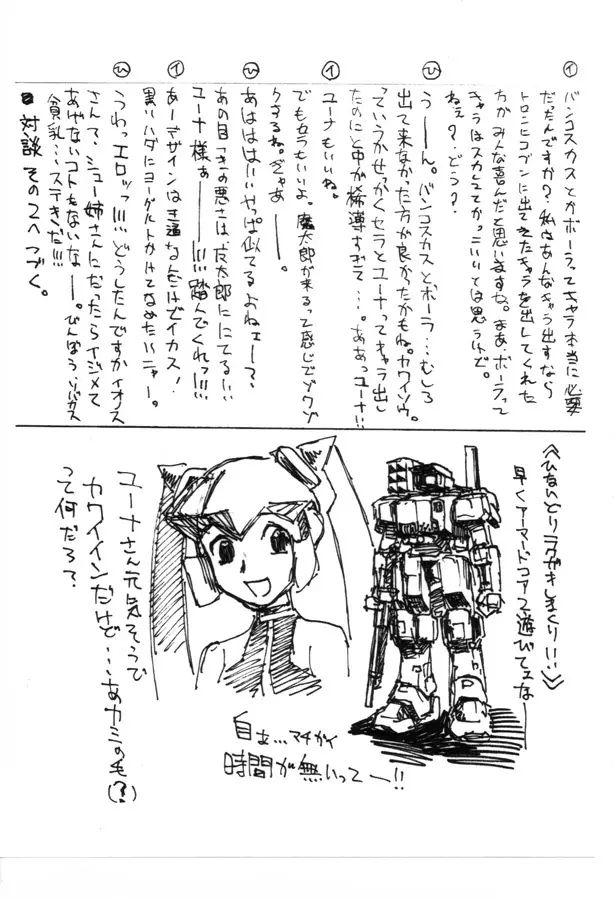 ㋑
バンコスカスとかボーラってキャラ本当に必要
だったんですか?私はあんなキャラ出すなら
トロンにコブンに出てきたキャラを出してくれた
方がみんな喜んだと思いますね。まあ、ボーラって
キャラはスカしててかっこいいとは思うけど。
ねぇ?、どう?、
㋪
うーん。バンコスカスとボーラ…むしろ
出て来なかった方が良かったかもね。カワイソウ。
っていうかせっかくセラとユーナってキャラ出し
たのにと中が稀薄すぎて…。ああっユーナ!!
㋑
ユーナもいいね。
でもセラもいいよ。魔太郎が来るって感じでゾクゾ
クするね。ぎゃあー。
㋪
あはははいやっぱ似てるよねェー?、
あの目つきの悪さは、太郎ににてる!!
ユーナ様ぁー!!!踏んでくれっ!!!
㋑
あーデザインは普通なんだけどイカス!
黒いハダにヨーグルトかけてなめたいニャー。
㋪
うわっエロッッ!!!どうしたんですかイオス
さんて、シュー姉さんにだったらイジメて
あげないコトもないなー。びんぼうソバカス
貧乳…ステきだ!!!
■対談その2へつづく。
《ひないどりラクガキしまくり!!》
早くアーマードコア2遊びてェなー
ユーナさん元気そうで
カワイインだけど…あカミのモ(?)
って何だろ?
自ま…マチガイ
時間が無いってー!!